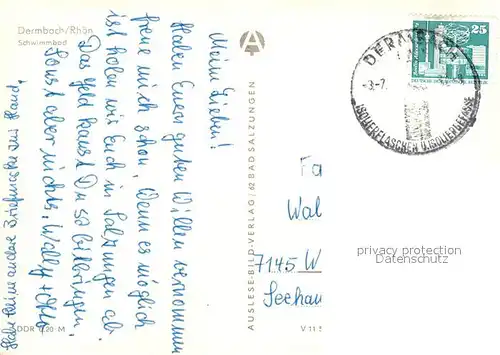 Dermbach/Rhön
Schwimmbad
Meine Lieben!
Haben Euren guten Willen vernommen
freue mich schon, Wenn es möglich
ist holen wir Euch in Salzungen ab
Das Geld kannst Du so beibringen,
Sonst aber nichts. Wally + Otto
Habe keine andere Briefmarke zur Hand,
DDR 0,20 M
AUSLESE-BILD-VERLAG, 62 BAD SALZUNGEN
V 11
25
DERMBACH
-3.-7.
ISOLIERFLASCHEN U. ISOLIERGEFÄSSE
Fa
Wal
7145 W
Seehau
privacy protection
Datenschutz